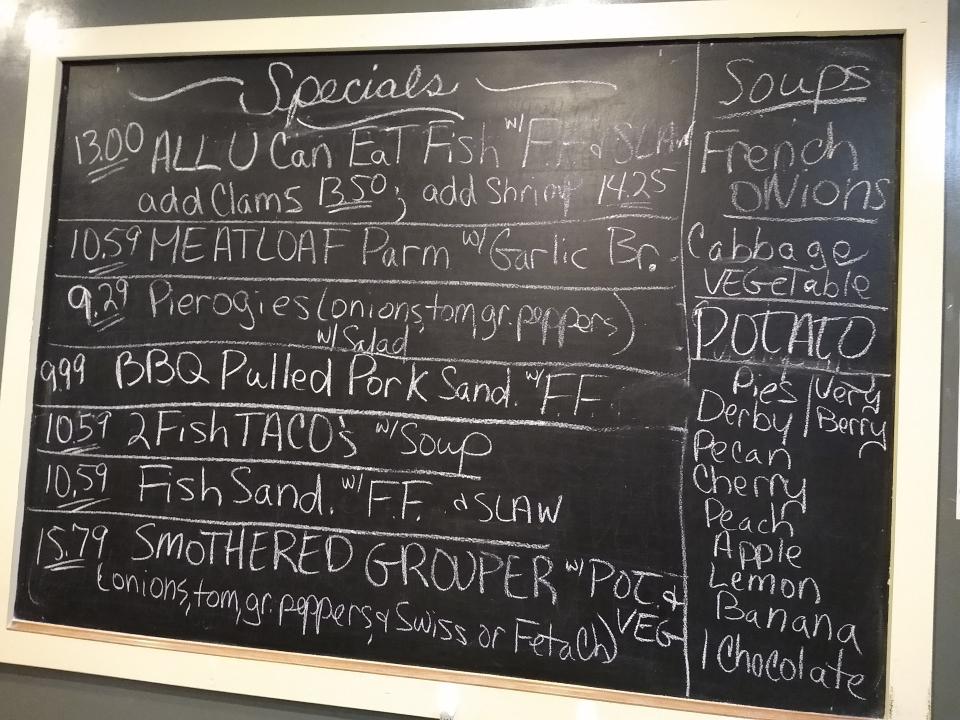 Specials
13.00 ALL U Can Eat Fish w/ F.F. & SLAW
add Clams 13.50; add Shrimp 14.25
10.59 MEATLOAF Parm w/ Garlic Br.
9.29 Pierogies (onions, tom, gr. peppers)
w/ Salad
9.99 BBQ Pulled Pork Sand. w/ F.F.
10.59 2 Fish TACO's w/ Soup
10.59 Fish Sand. w/ F.F. & SLAW
15.79 SMOTHERED GROUPER w/ POT. &
VEG
(onions, tom, gr. peppers, & Swiss or Feta Ch)
Soups
French
Onions
Cabbage
VEGETable
POTATO
Pies
Derby
Pecan
Cherry
Peach
Apple
Lemon
Banana
1 Chocolate
1 Very
Berry